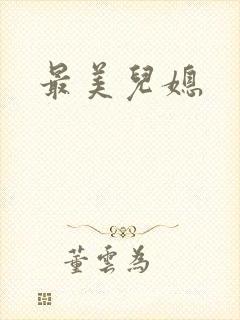 最美兒媳
董雲為